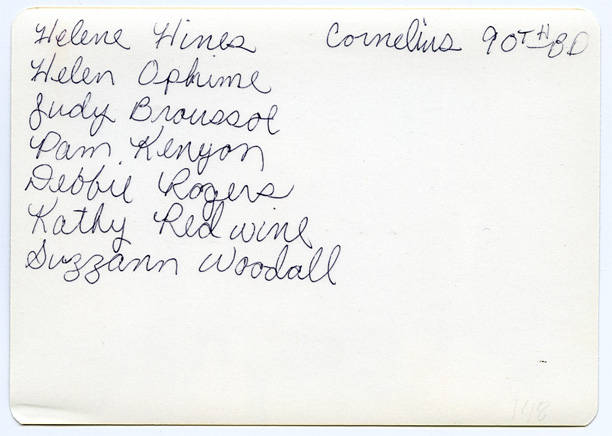 Helene Hines Cornelius 90TH BD
Helen Ophime
Judy Broussol
Pam Kenyon
Debbie Rogers
Kathy Redwine
Suzzann Woodall
148